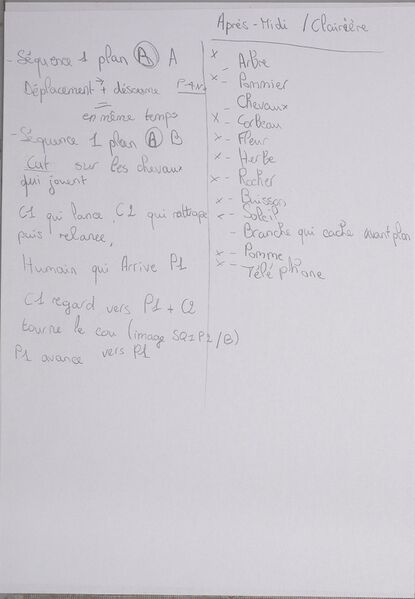 - Séquence 1 plan A A
Déplacement → + dézoome P-ANo
en même temps
- Séquence 1 plan A B
Cut sur les chevaux
qui jouent
C1 qui lance, C2 qui rattrape
puis relance,
Humain qui Arrive P1
C1 regard vers P1 + C2
tourne le cou (image SQ1P2/B)
P1 avance vers P1
Après-Midi / Clairière
x - Arbre
x - Pommier
- Chevaux
x - Corbeau
x - Fleur
x - Herbe
x - Rocher
x - Buisson
x - Soleil
- Branche qui cache avant plan
x - Pomme
x - Téléphone